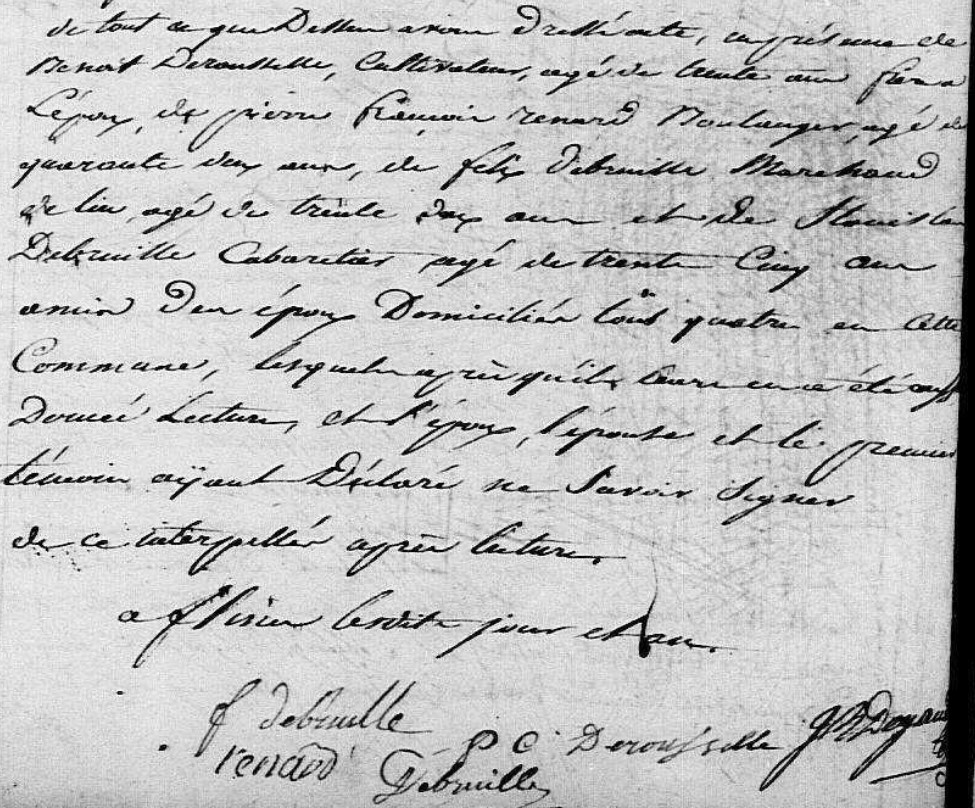 de tout ce que Dessu avons Dressé acte, en présence de
Benoit Derousselle, Cultivateur, agé de trente ans frere a
L'époux, de pierre françois renard Boulanger, agé de
quarante deux ans, de felix Debruille Marchand
de lin, agé de trente deux ans et de Stanislas
Debruille Cabaretier agé de trente Cinq ans
amis des époux Domiciliés tous quatre en Cette
Commune, lesquels après qu'il leurs en a été aussi
Donné Lecture, et l'époux, l'épouse et le premier
témoin aÿant Déclaré ne Savoir Signer
de ce interpellés après lecture.
a flines lesdits jour et an.
f debruille
renard
Debruille
P C Derousselle